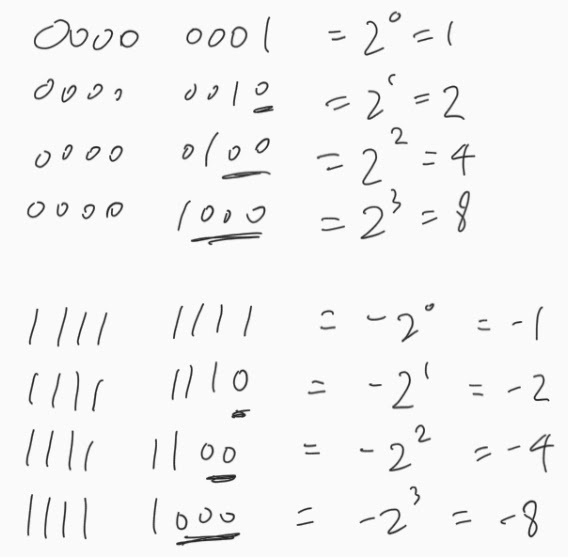 0000 0001 = 2⁰ = 1
0000 0010 = 2¹ = 2
0000 0100 = 2² = 4
0000 1000 = 2³ = 8
1111 1111 = -2⁰ = -1
1111 1110 = -2¹ = -2
1111 1100 = -2² = -4
1111 1000 = -2³ = -8